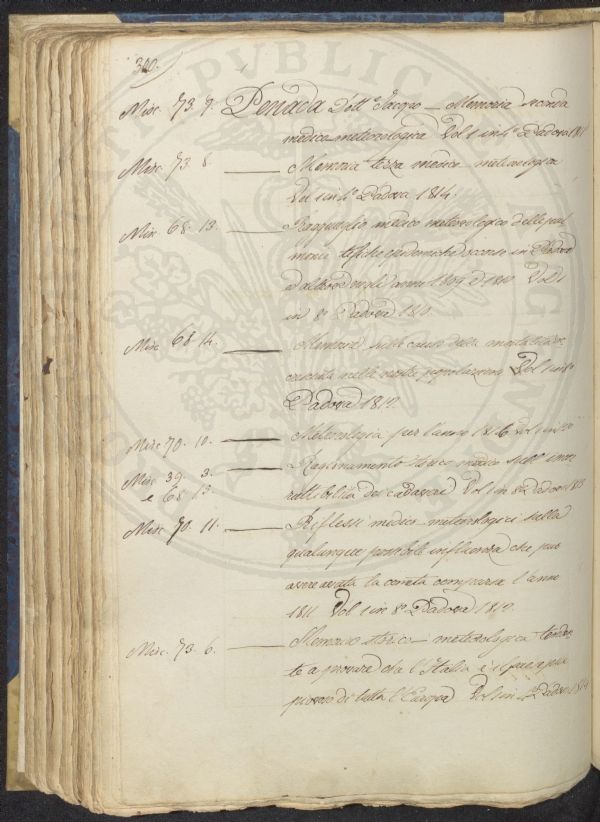 340.
Misc. 73. 7. Penada Dott.r Jacopo — Memoria seconda
medico-meteorologica Vol 1 in 4.° Padova
Misc. 73. 8. ——— Memoria terza medico-meteorologica
Vol 1 in 4.° Padova 1814.
Misc 68. 13. ——— Ragguaglio medico meteorologico delle pul
monie epidemiche scorse in Padova
ed altrove negli anni 1809 e 1810 Vol 1
in 8.° Padova 1810.
Misc 68. 14. ——— Memoria sulle cause della
nella nostra popolazione Vol 1 in
Padova
Misc 70. 10. ——— Meteorologia per l'anno 1816 Vol 1 in
Misc. 39. 3. ——— Ragionamento medico sull'
e 68. 13. de' cadaveri Vol 1 in 8.° Padova
Misc. 70. 11. ——— Riflessi medico-meteorologici sulla
qualunque possibile influenza che può
avere avuta la cometa comparsa l'anno
1811 Vol 1 in 8.° Padova
Misc. 73. 6. ——— Memoria storico-meteorologica tenden
te a provare che l'Italia è il paese più
piovoso di tutta l'Europa Vol 1 in Padova